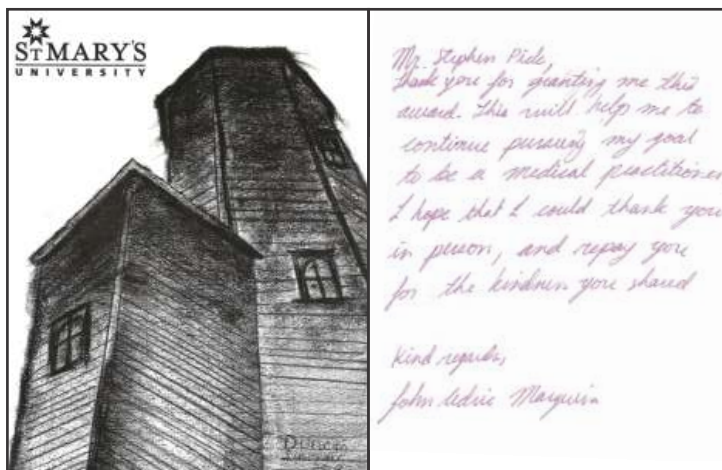 ST MARY'S
UNIVERSITY
Mr. Stephen
Thank you for granting me this
award. This will help me to
continue pursuing my goal
to be a medical practitioner
I hope that I could thank you
in person, and repay you
for the kindness you shared
Kind regards,
John Cedric